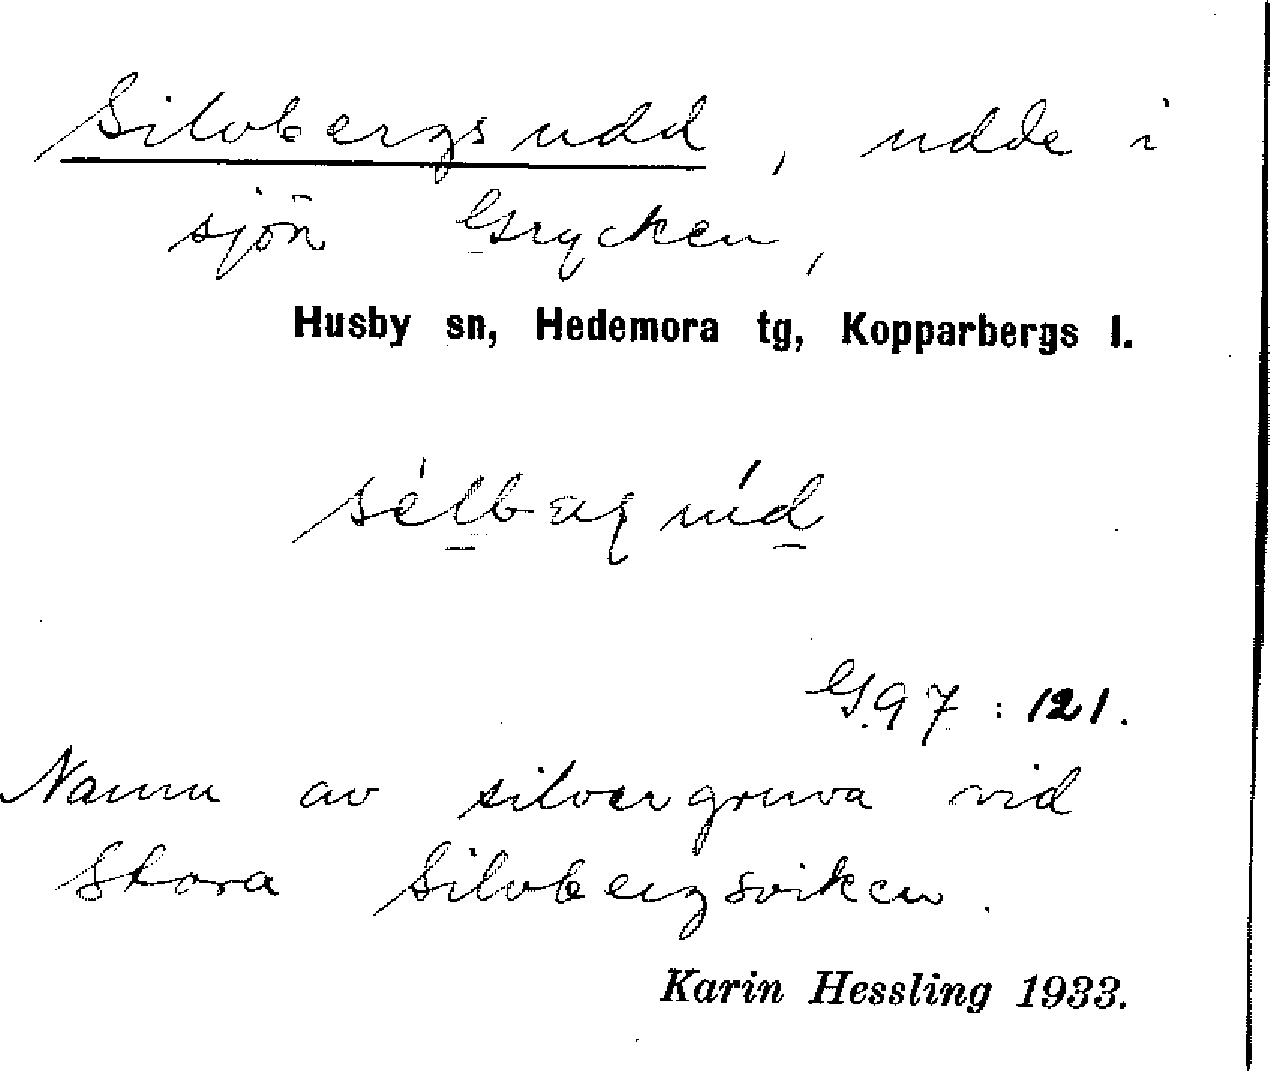 Silvbergsudd, udde i
sjön Grycken,
Husby sn, Hedemora tg, Kopparbergs l.
G97:121.
Namn av silvergruva vid
Stora Silvbergsviken.
Karin Hessling 1933.